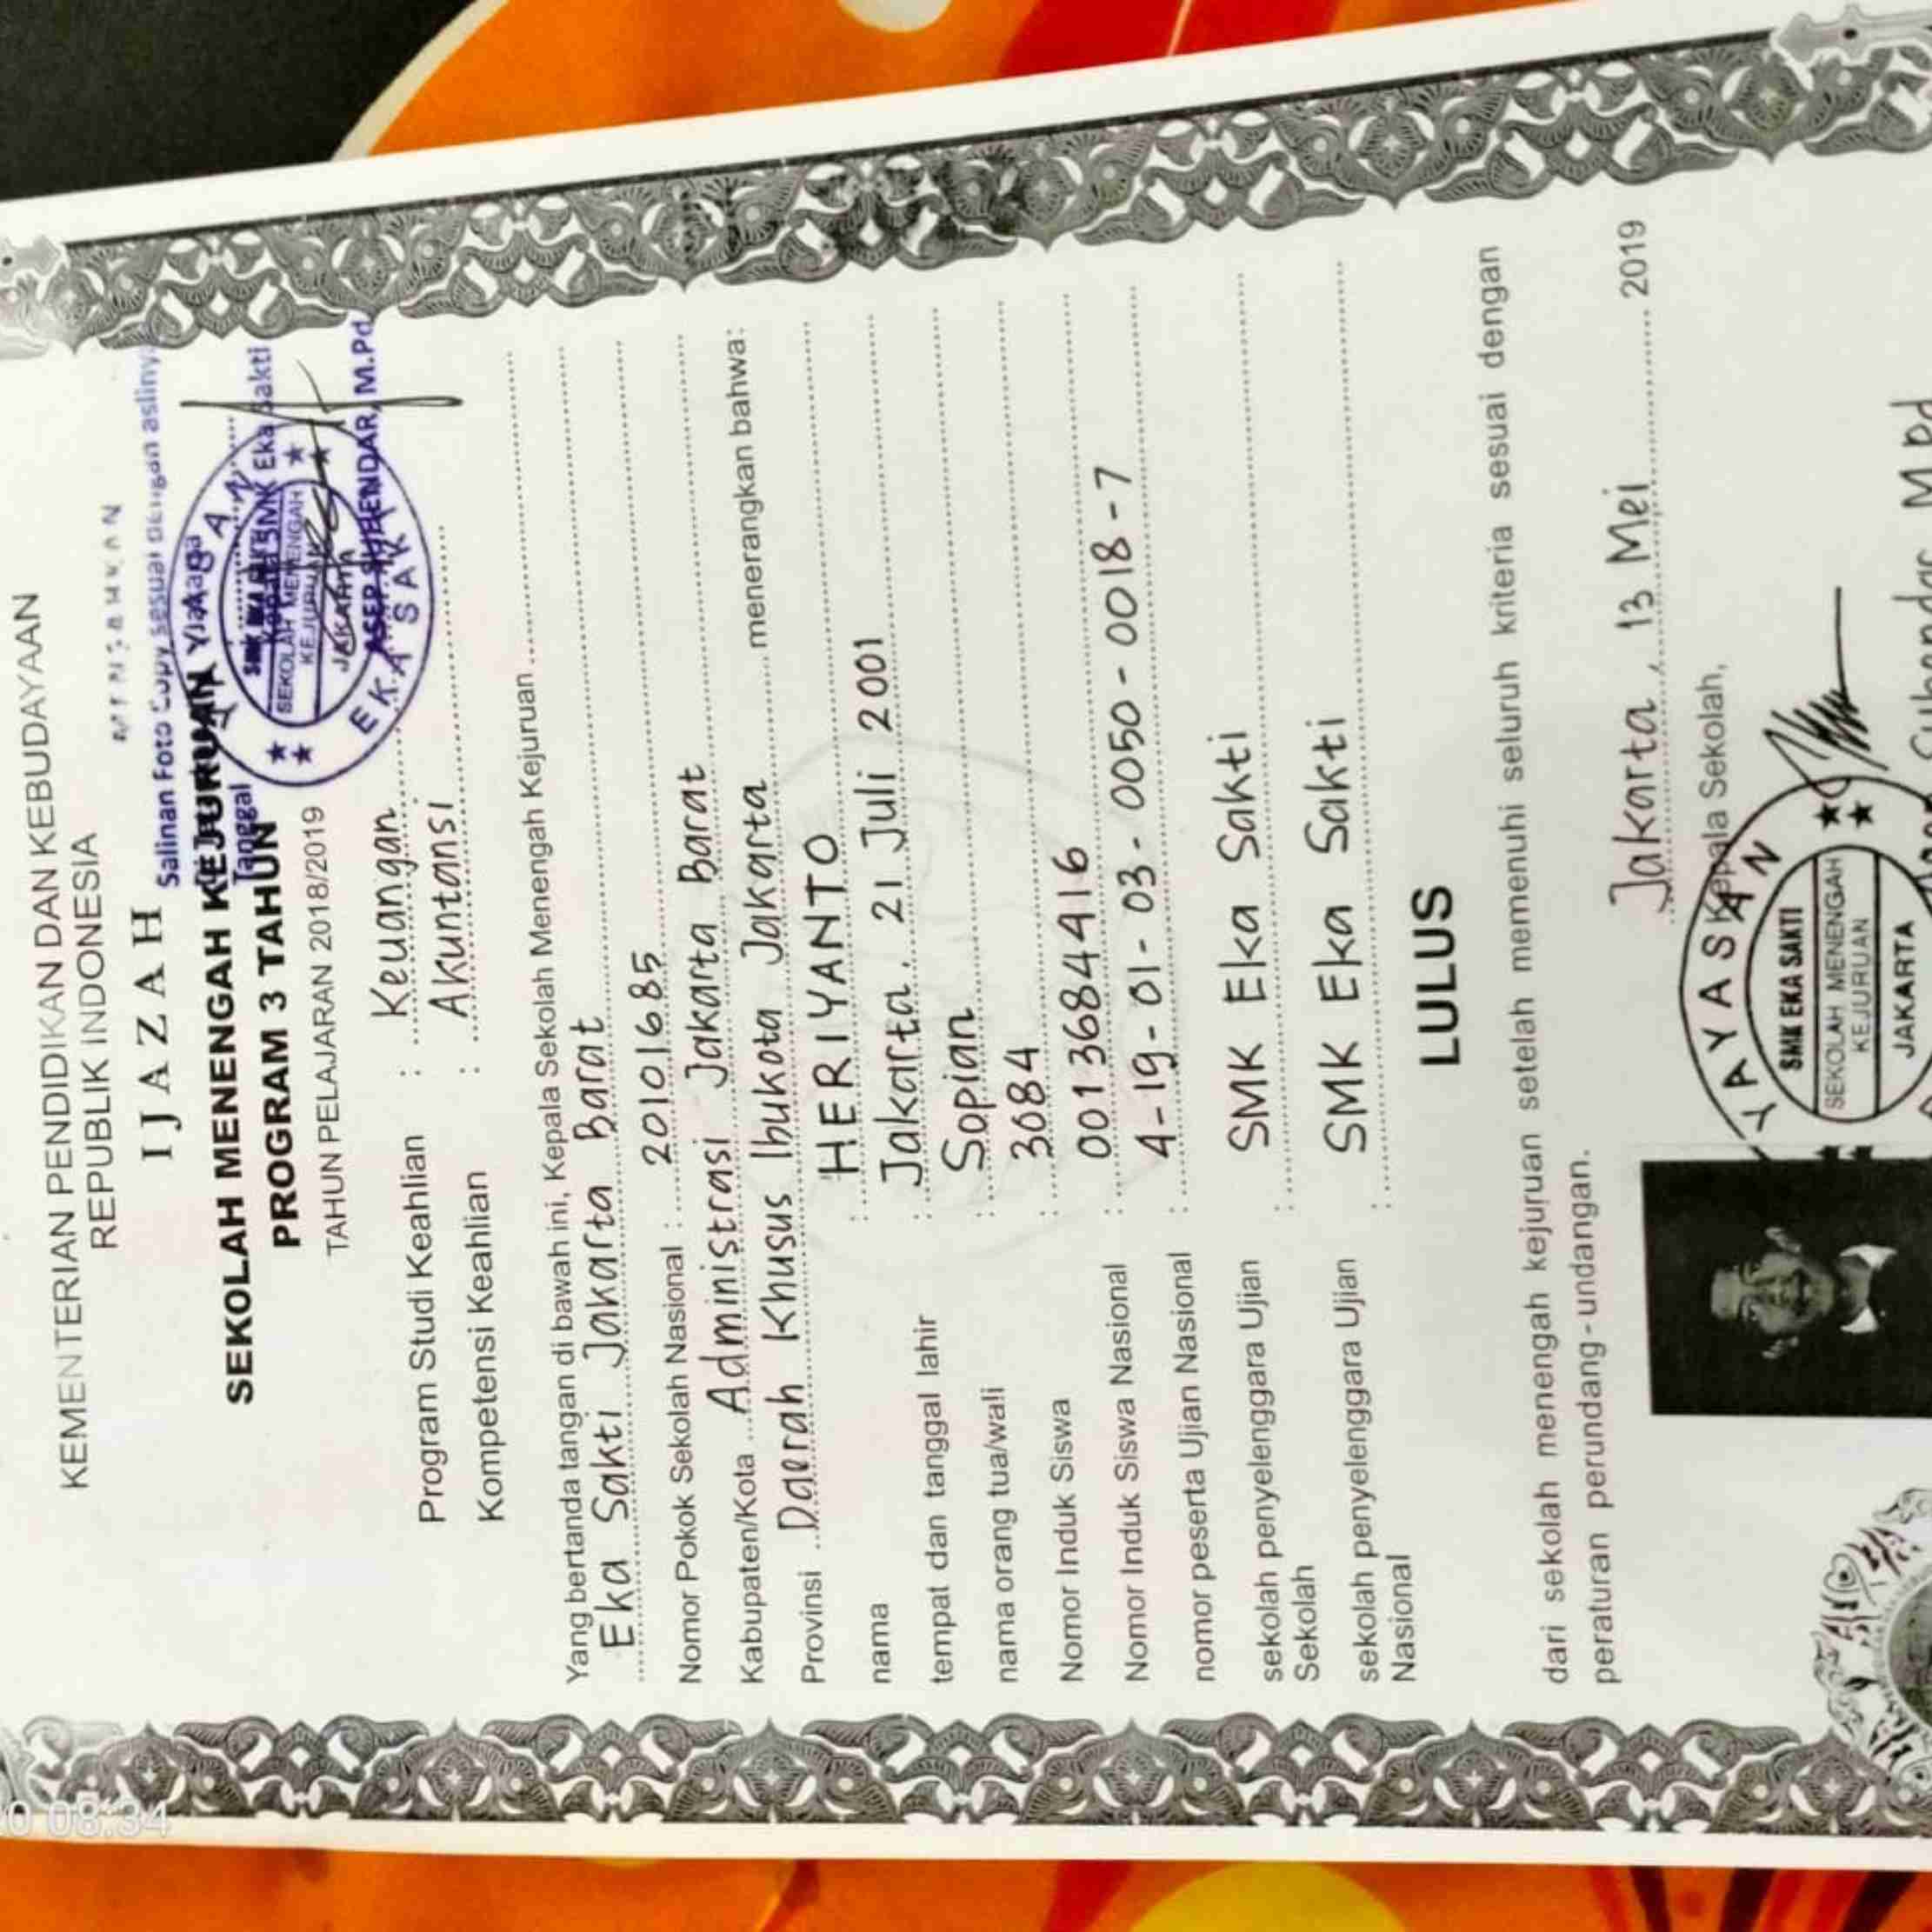 KEMENTERIAN PENDIDIKAN DAN KEBUDAYAAN
REPUBLIK INDONESIA
IJAZAH
Salinan Foto Copy sesuai dengan aslinya
SEKOLAH MENENGAH KEJURUAN
Tanggal
PROGRAM 3 TAHUN
TAHUN PELAJARAN 2018/2019
Kepala SMK Eka Sakti
SEKOLAH MENENGAH
KEJURUAN
JAKARTA
EKA SAKTI
ASEP SUHENDAR, M.Pd
Program Studi Keahlian : Keuangan
Kompetensi Keahlian : Akuntansi
Yang bertanda tangan di bawah ini, Kepala Sekolah Menengah Kejuruan
Eka Sakti Jakarta Barat
Nomor Pokok Sekolah Nasional : 20101685
Kabupaten/Kota Administrasi Jakarta Barat
Provinsi Daerah Khusus Ibukota Jakarta menerangkan bahwa:
nama : HERIYANTO
tempat dan tanggal lahir : Jakarta, 21 Juli 2001
nama orang tua/wali : Sopian
Nomor Induk Siswa : 3084
Nomor Induk Siswa Nasional : 0013684416
nomor peserta Ujian Nasional : 4-19-01-03-0050-0018-7
sekolah penyelenggara Ujian : SMK Eka Sakti
Sekolah
sekolah penyelenggara Ujian : SMK Eka Sakti
Nasional
LULUS
dari sekolah menengah kejuruan setelah memenuhi seluruh kriteria sesuai dengan
peraturan perundang-undangan.
Jakarta, 13 Mei 2019
Kepala Sekolah,
YAYASAN
SMK EKA SAKTI
SEKOLAH MENENGAH
KEJURUAN
JAKARTA
Suhendar M.Pd
08:34